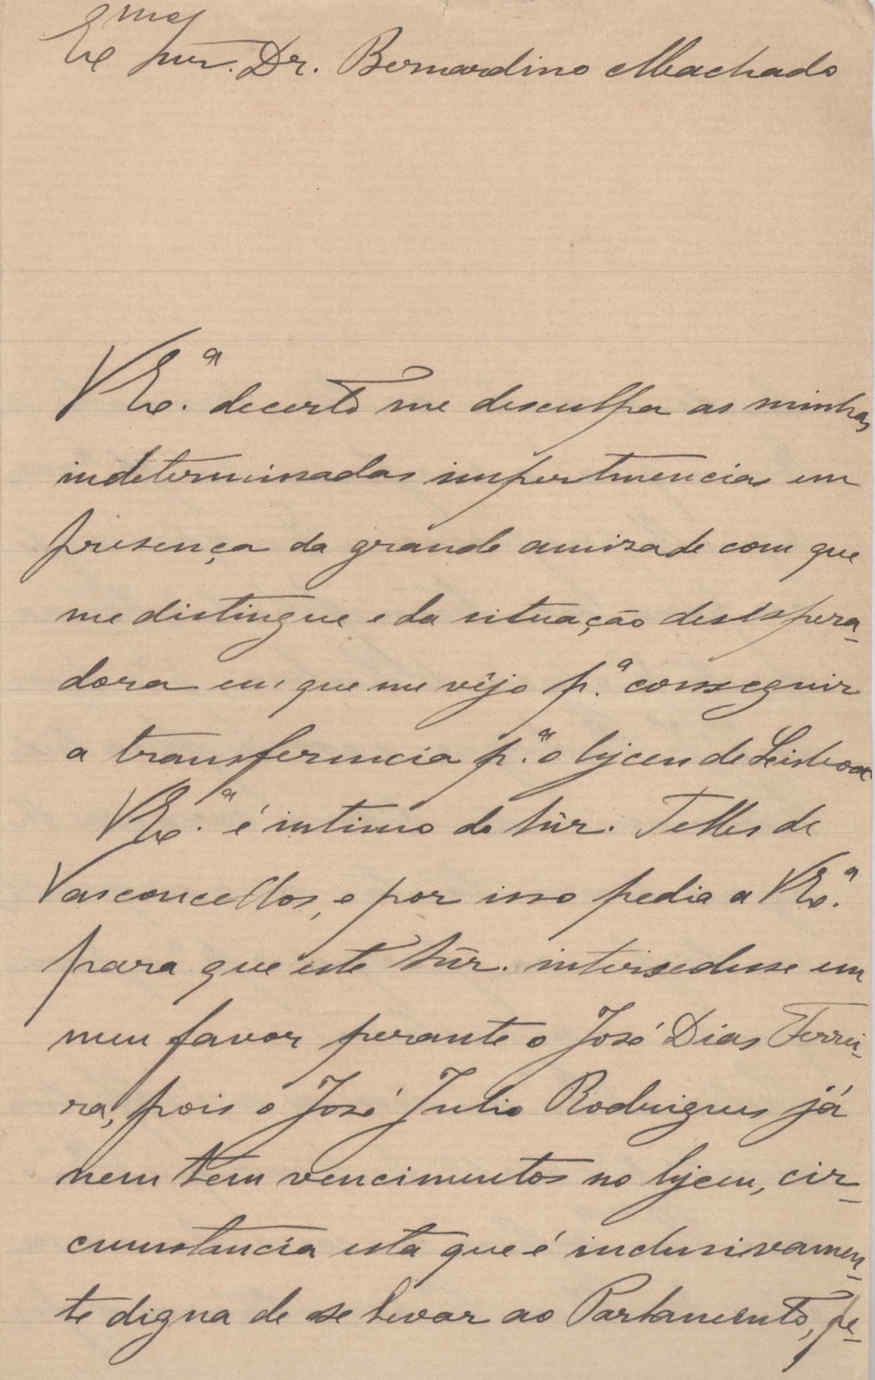 Ex.mo Snr. Dr. Bernardino Machado
V Ex.ª decerto me desculpa as minhas
indeterminadas impertinencias em
presença da grande amizade com que
me distingue e da situação desespera-
dora em que me vejo p.ª conseguir
a transferencia p.ª o lyceu de Lisboa
V Ex.ª é intimo do Snr. Telles de
Vasconcellos, e por isso pedia a V Ex.ª
para que este Snr. intersedesse em
meu favor perante o José Dias Ferrei-
ra, pois o José Julio Rodrigues já
nem tem vencimentos no lyceu, cir-
cumstancia esta que é inclusivamen-
te digna de se levar ao Parlamento, pe-